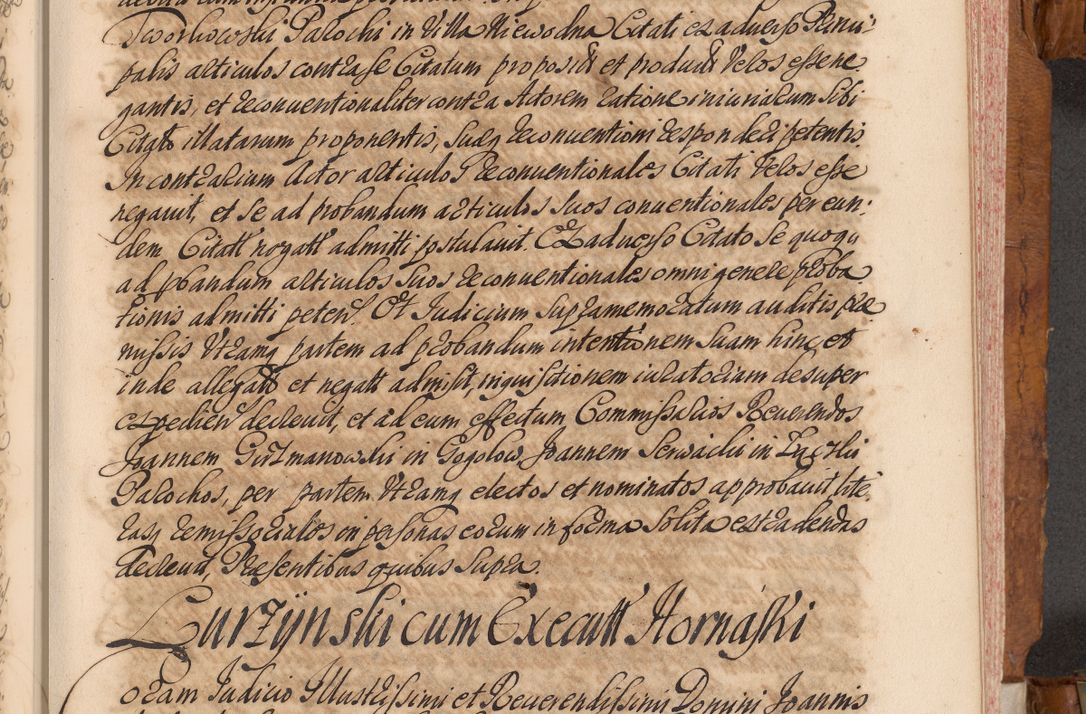 Tworkowski Parochi in Villa Niewodna Citati ex adverso Princi:
palis articulos contra se Citatum propositos et productos Velos esse ne
gantis, et reconventionaliter contra Actorem ratione iniuriarum sibi
Citato illatarum proponentis, suæq reconventioni responderi petentis.
In contrarium Actor articulos Reconventionales Citati Velos esse
negavit, et se ad probandum articulos suos conventionales per eun:
dem Citatt negatt admitti postulavit. Ex adverso Citato se quoq
ad pbandum articulos suos reconventionales omni genere proba
tionis admitti peten. Et Judicium supramemoratum auditis præ
missis Utramq partem ad probandum intentionem suam hinc et
inde allegatt et negatt admisit, inquisitionem iuratoriam desuper
expedien decrevit, et ad eum effectum Commissarios Reverendos
Joannem Gutzmanowski in Gogolow, Joannem Serwacki in Luczki
Parochos, per partem Utramq electos et nominatos approbavit, lite
rasq remissoriales in personas eorum in forma solita extradendas
decrevit, Præsentibus quibus supra.
Curzÿnski cum Executt Hornaski
oram Judicio Illustrissimi et Reverendissimi Domini Joannis